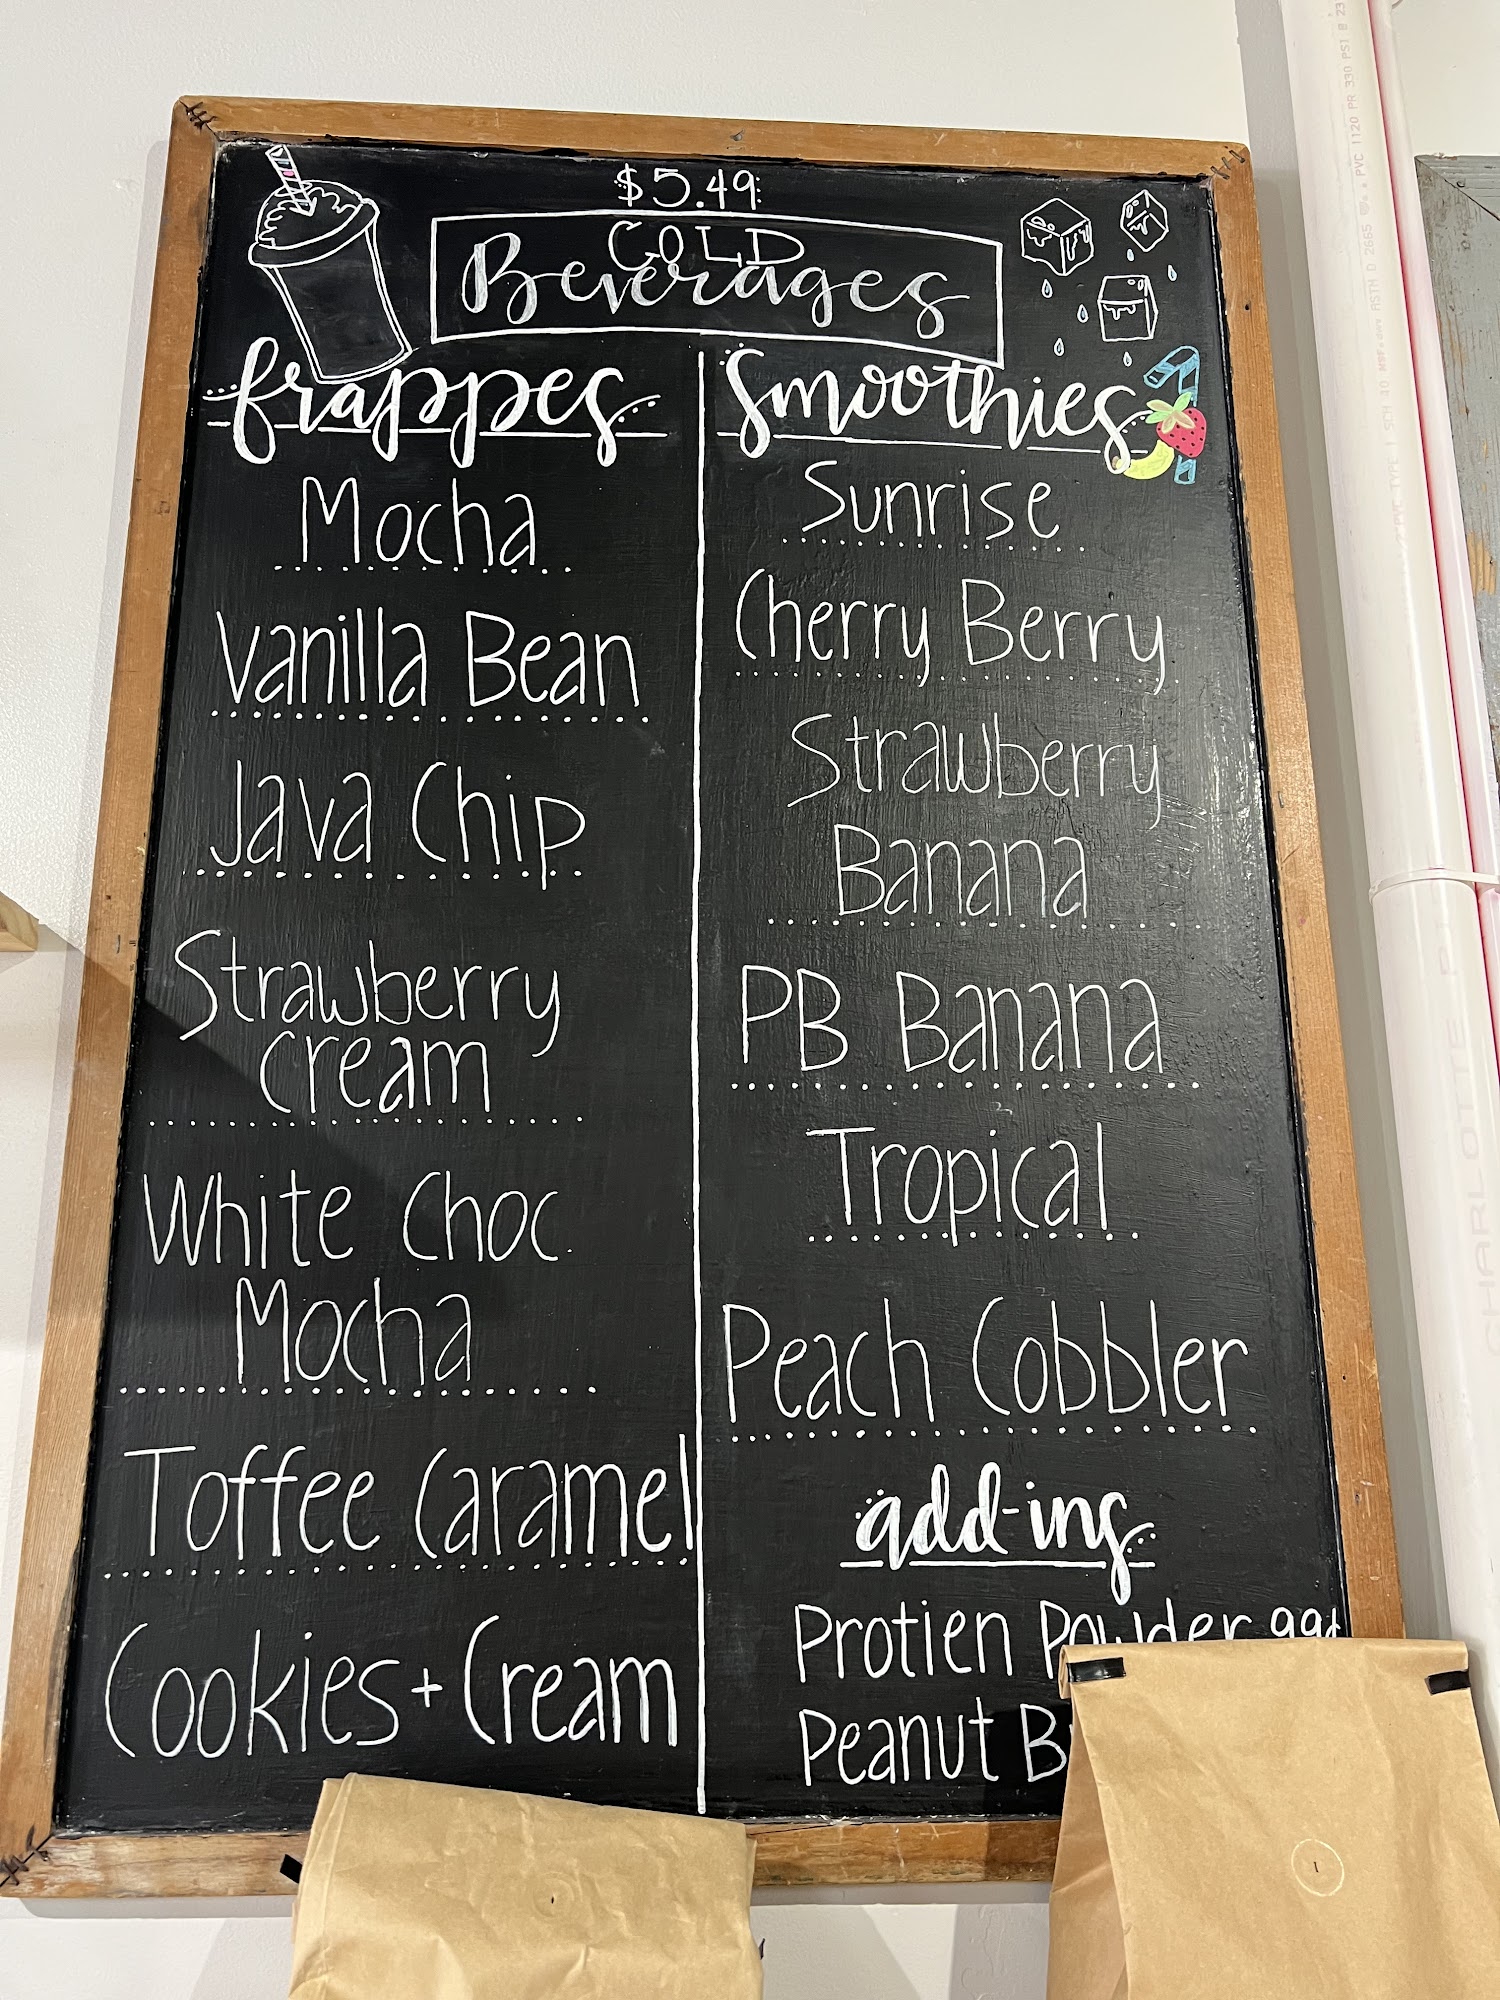 $5.49
COLD
Beverages
frappes
Mocha
Vanilla Bean
Java Chip
Strawberry
Cream
White Choc.
Mocha
Toffee Caramel
Cookies + Cream
Smoothies
Sunrise
Cherry Berry
Strawberry
Banana
PB Banana
Tropical
Peach Cobbler
add-ins
Protien Powder 99¢
Peanut